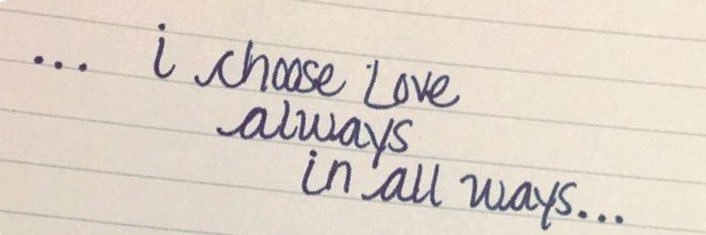 ... i choose Love
always
in all ways...